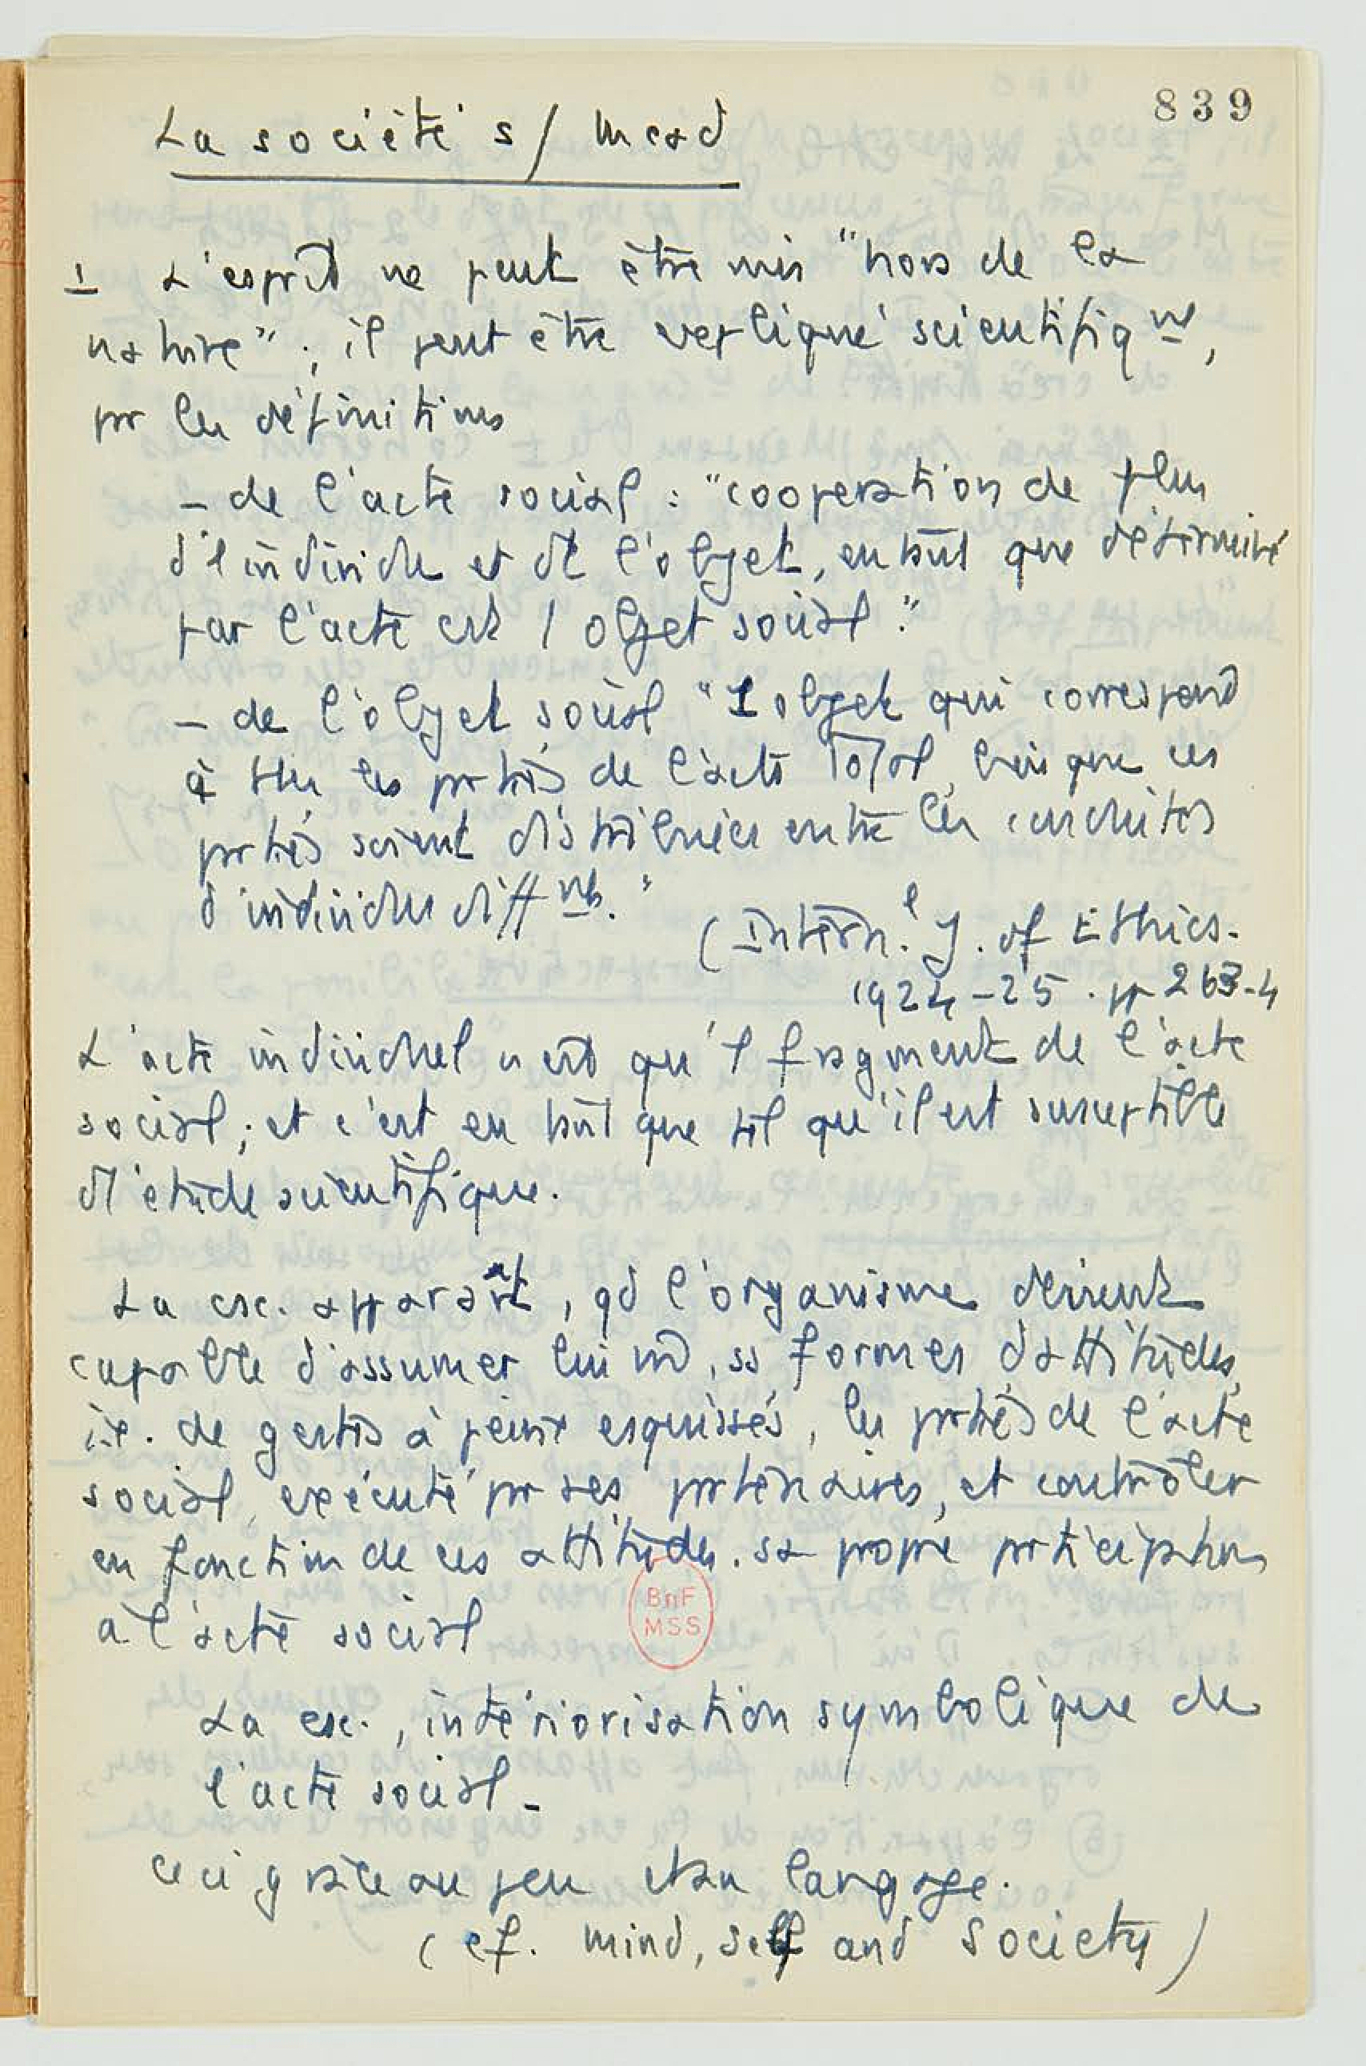 839
La société s/ Mead
I L'esprit ne peut être mis "hors de la
nature" ; il peut être expliqué scientifiqnt,
par les définitions
- de l'acte social : "coopération de plus
d'1 individu et dt l'objet, en tant que déterminé
par l'acte est 1 objet social".
- de l'objet social "1 objet qui correspond
à ttes les parties de l'acte total, bien que ces
parties soient distribuées entre les conduites
d'individus diffnts."
(Internl. J. of Ethics.
1924-25. pp 263-4
L'acte individuel n'est qu'1 fragment de l'acte
social ; et c'est en tant que tel qu'il est susceptible
d'étude scientifique.
La csc. apparaît, qd l'organisme devient
capable d'assumer lui m̂, ss formes d'attitudes,
i.e. de gestes à peine esquissés, les parties de l'acte
social, exécuté par ses partenaires, et contrôler
en fonction de ces attitudes. sa propre participation
à l'acte social
La csc., intériorisation symbolique de
l'acte social -
Ceci grâce au jeu et au langage.
(cf. Mind, self and Society)
BnF
MSS